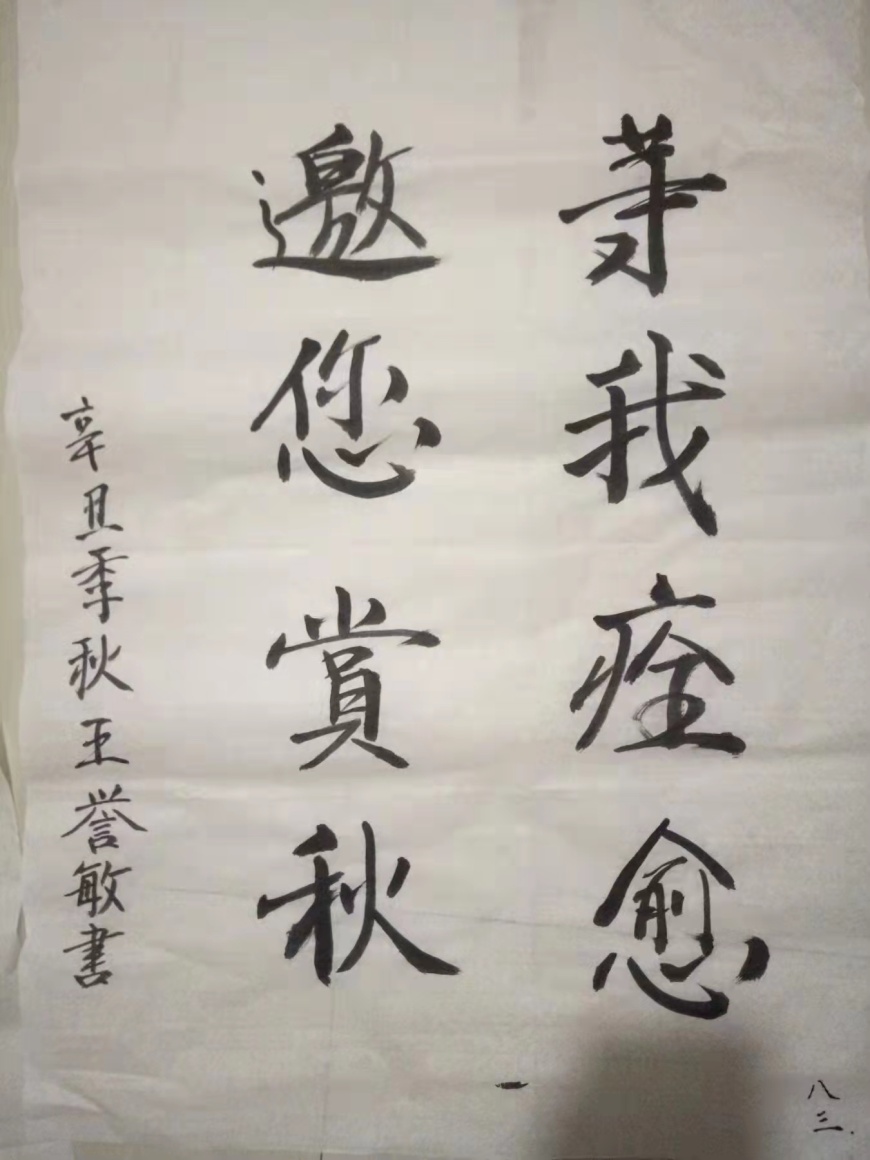 等我痊愈
邀您赏秋
辛丑季秋王誉敏书
八三